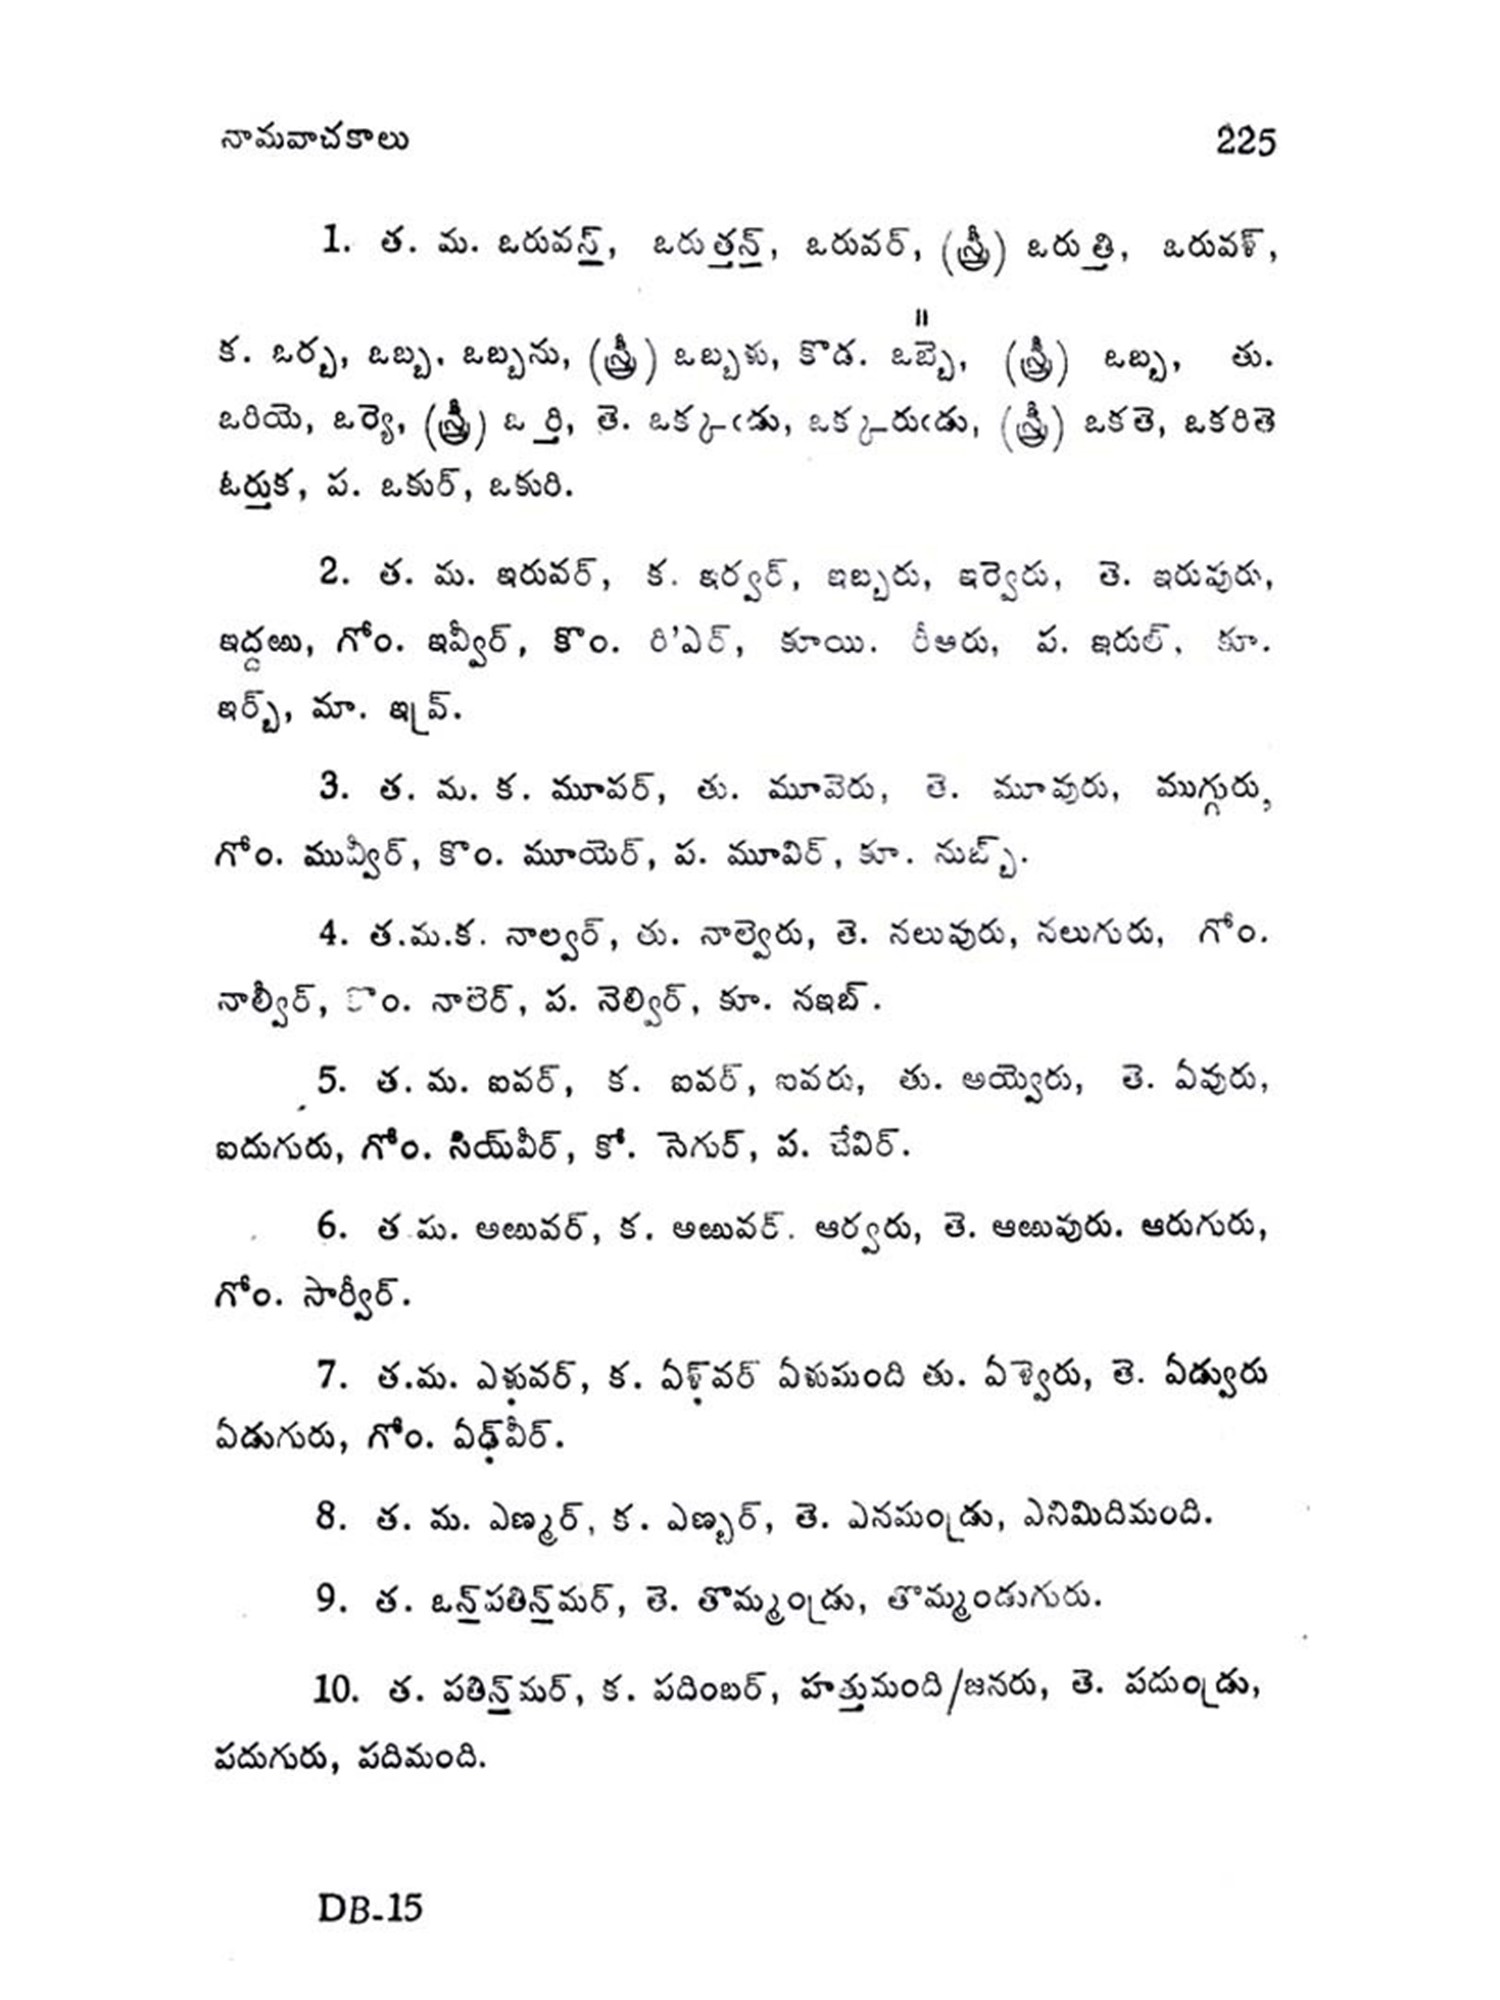 నామవాచకాలు 225
1. త. మ. ఒరువన్, ఒరుత్తన్, ఒరువర్, (స్త్రీ) ఒరుత్తి, ఒరువళ్,
క. ఒర్బ, ఒబ్బ. ఒబ్బను, (స్త్రీ) ఒబ్బళు, కొడ. ఒబ్బె, (స్త్రీ) ఒబ్బ, తు.
ఒరియె, ఒర్యె, (స్త్రీ) ఒర్తి, తె. ఒక్కఁడు, ఒక్కరుఁడు, (స్త్రీ) ఒకతె, ఒకరితె
ఓర్తుక, ప. ఒకుర్, ఒకురి.
2. త. మ. ఇరువర్, క. ఇర్వర్, ఇబ్బరు, ఇర్వెరు, తె. ఇరువురు,
ఇద్దఱు, గోం. ఇవ్వీర్, కొం. రి'ఎర్, కూయి. రీఆరు, ప. ఇరుల్, కూ.
ఇర్బ్, మా. ఇవ్ర్.
3. త. మ. క. మూవర్, తు. మూవెరు, తె. మూవురు, ముగ్గురు,
గోం. మువ్వీర్, కొం. మూయెర్, ప. మూవిర్, కూ. నుబ్బ్.
4. త.మ.క. నాల్వర్, తు. నాల్వెరు, తె. నలువురు, నలుగురు, గోం.
నాల్వీర్, ొం. నాలెర్, ప. నెల్విర్, కూ. నఇబ్.
5. త. మ. ఐవర్, క. ఐవర్, ఐవరు, తు. అయ్వెరు, తె. ఏవురు,
ఐదుగురు, గోం. సియ్‌వీర్, కో. సెగుర్, ప. చేవిర్.
6. త.మ. అఱువర్, క. అఱువర్. ఆర్వరు, తె. ఆఱువురు. ఆరుగురు,
గోం. సార్వీర్.
7. త.మ. ఎళు̣వర్, క. ఏళ్̣‌వర్ ఏళుమంది తు. ఏళ్వెరు, తె. ఏడ్వురు
ఏడుగురు, గోం. ఏడ్̣‌వీర్.
8. త. మ. ఎణ్మర్, క. ఎణ్బర్, తె. ఎనమండ్రు, ఎనిమిదిమంది.
9. త. ఒన్‌పతిన్‌మర్, తె. తొమ్మండ్రు, తొమ్మండుగురు.
10. త. పతిన్‌మర్, క. పదింబర్, హత్తుమంది/జనరు, తె. పదుండ్రు,
పదుగురు, పదిమంది.
DB-15